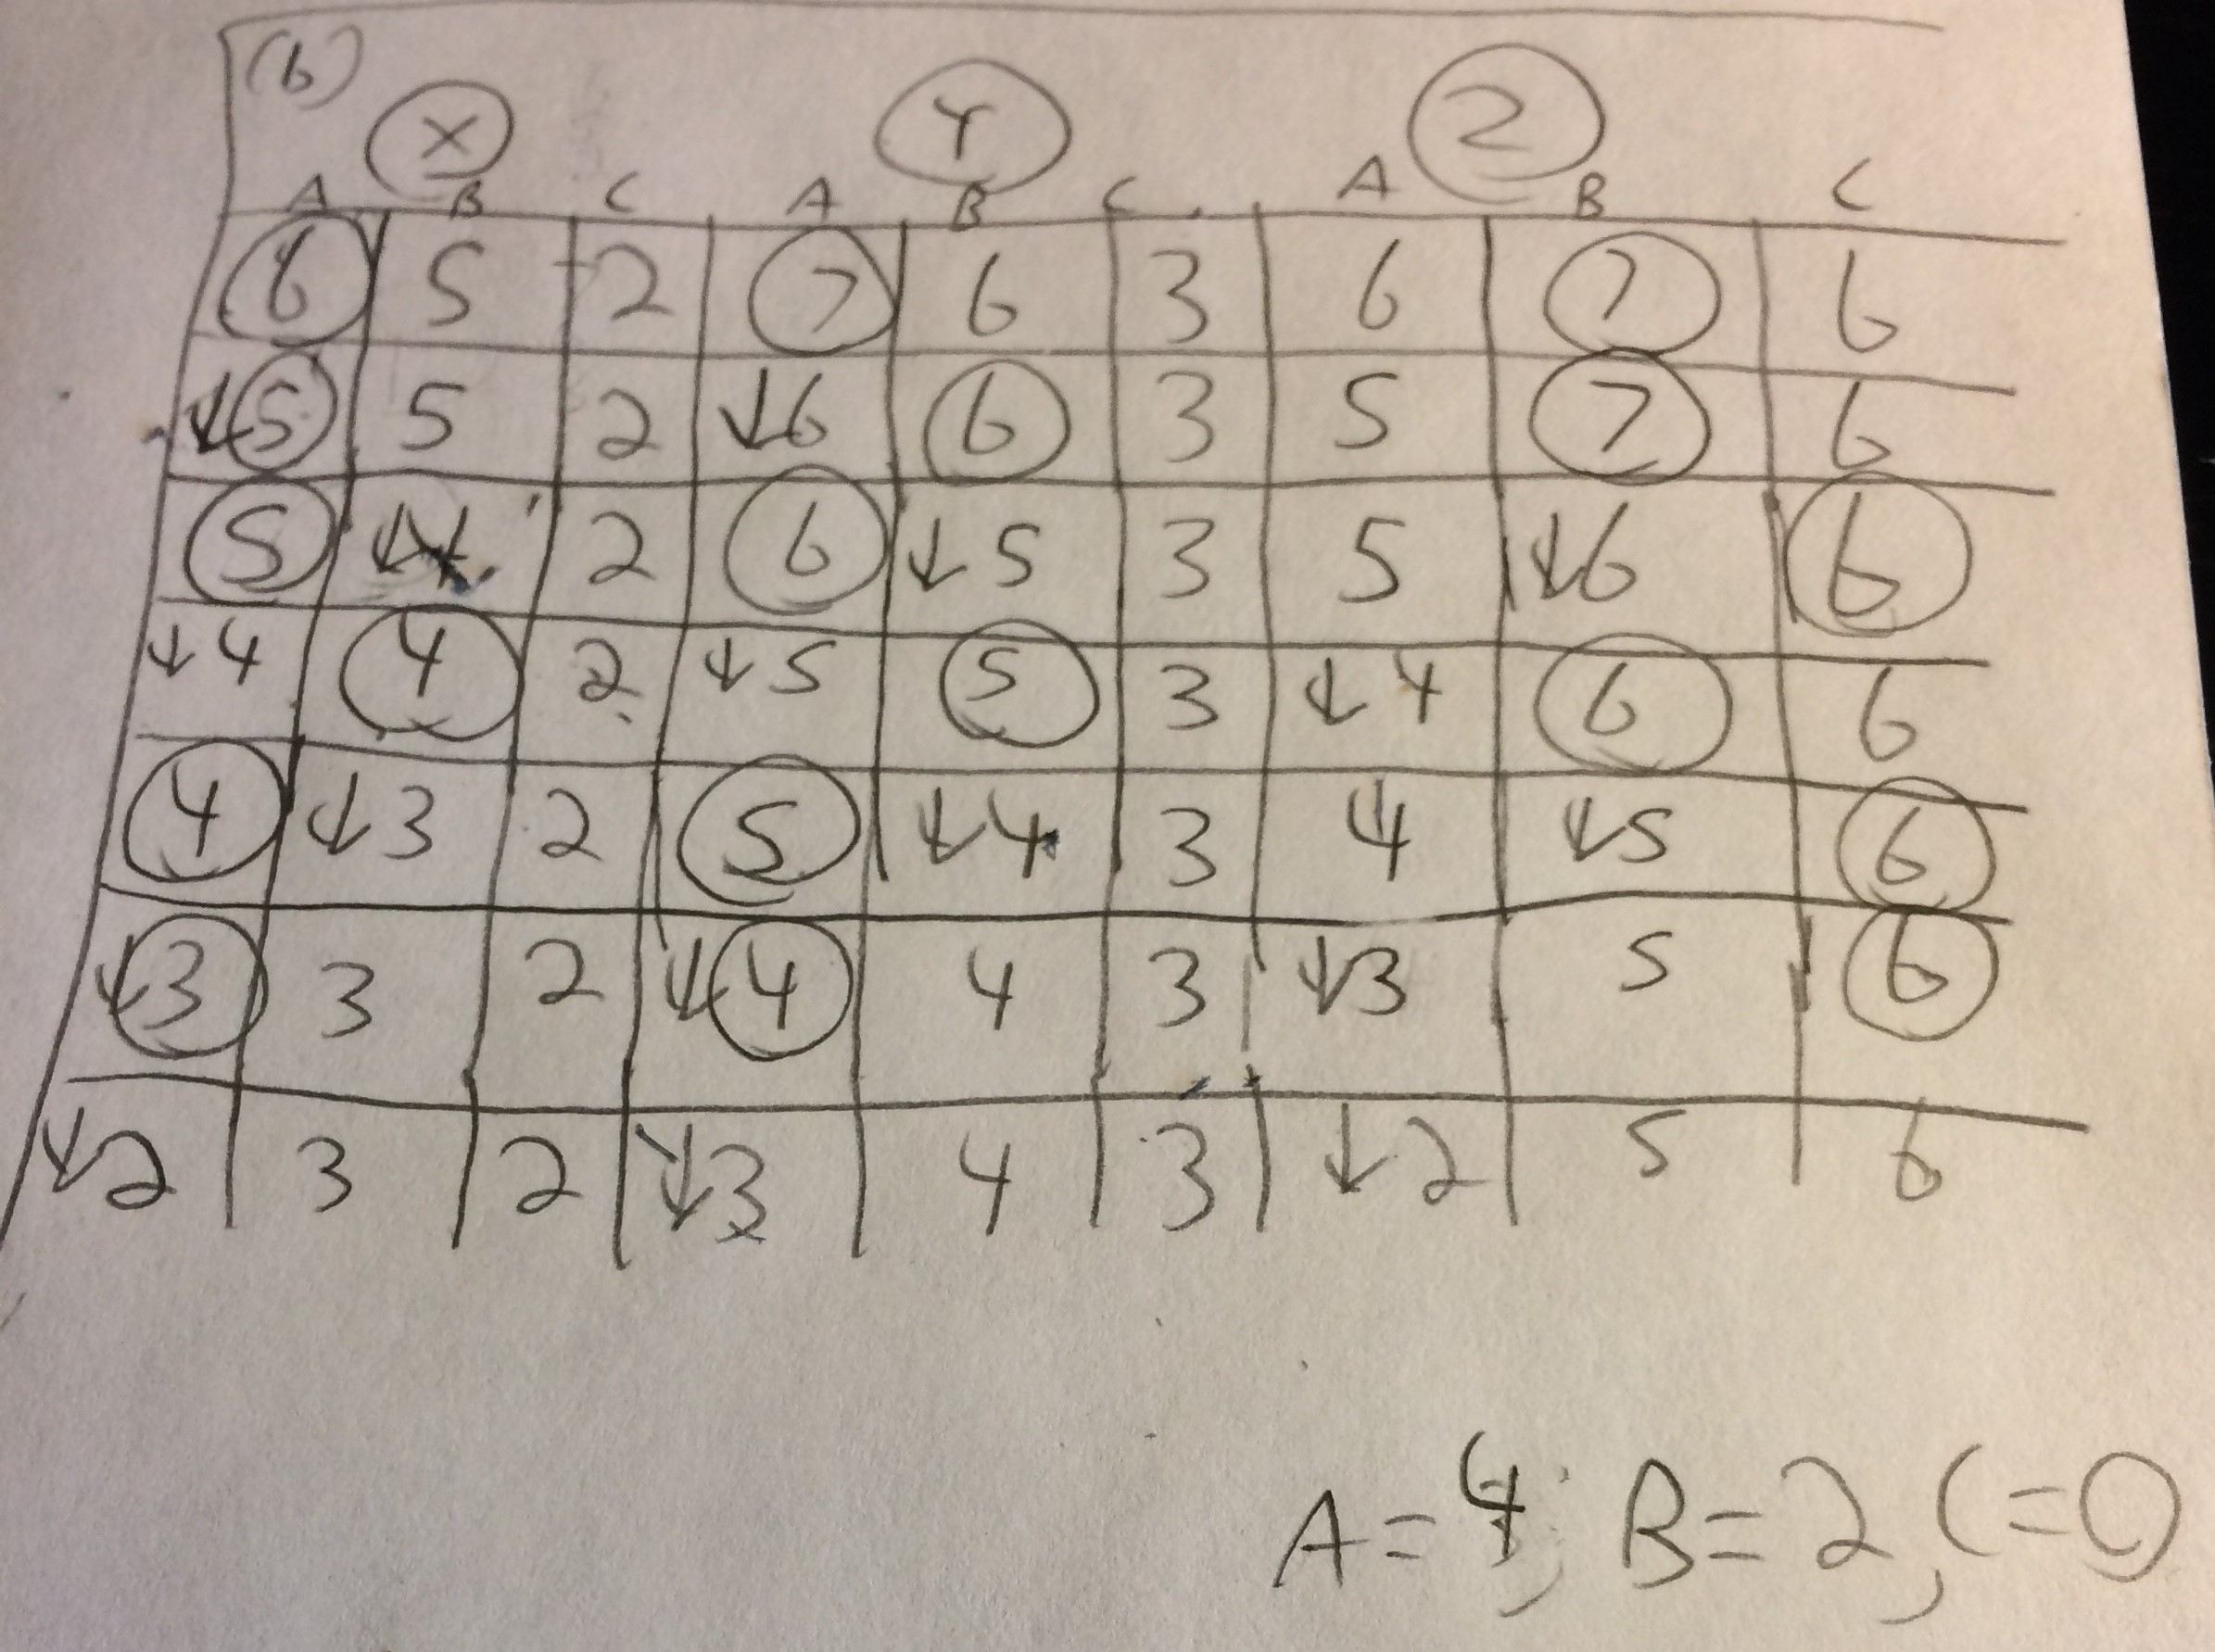 (b)
X Y Z
A B C A B C A B C
6 5 2 7 6 3 6 7 6
↓5 5 2 ↓6 6 3 5 7 6
5 ↓4 2 6 ↓5 3 5 ↓6 6
↓4 4 2 ↓5 5 3 ↓4 6 6
4 ↓3 2 5 ↓4 3 4 ↓5 6
↓3 3 2 ↓4 4 3 ↓3 5 6
↓2 3 2 ↓3 4 3 ↓2 5 6
A=4; B=2, C=0